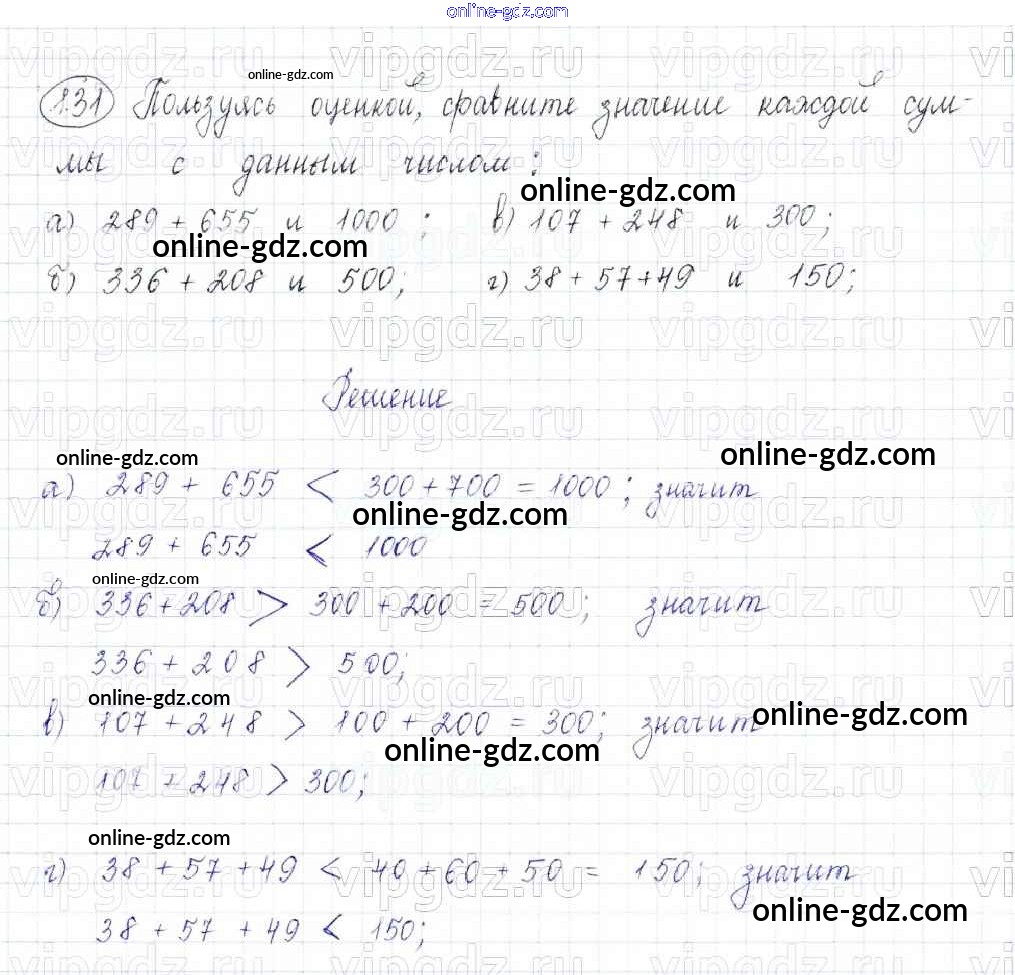 online-gdz.com
online-gdz.com
1.31 Пользуясь оценкой, сравните значение каждой сум-
мы с данным числом:
online-gdz.com
а) 289 + 655 и 1000; в) 107 + 248 и 300;
online-gdz.com
б) 336 + 208 и 500; г) 38 + 57 + 49 и 150;
vipgdz.ru vipgdz.ru vipgdz.ru
Решение
online-gdz.com online-gdz.com
а) 289 + 655 < 300 + 700 = 1000; значит
online-gdz.com
289 + 655 < 1000
online-gdz.com
б) 336 + 208 > 300 + 200 = 500; значит
336 + 208 > 500;
online-gdz.com online-gdz.com
в) 107 + 248 > 100 + 200 = 300; значит
online-gdz.com
107 + 248 > 300;
online-gdz.com
г) 38 + 57 + 49 < 40 + 60 + 50 = 150; значит
online-gdz.com
38 + 57 + 49 < 150;